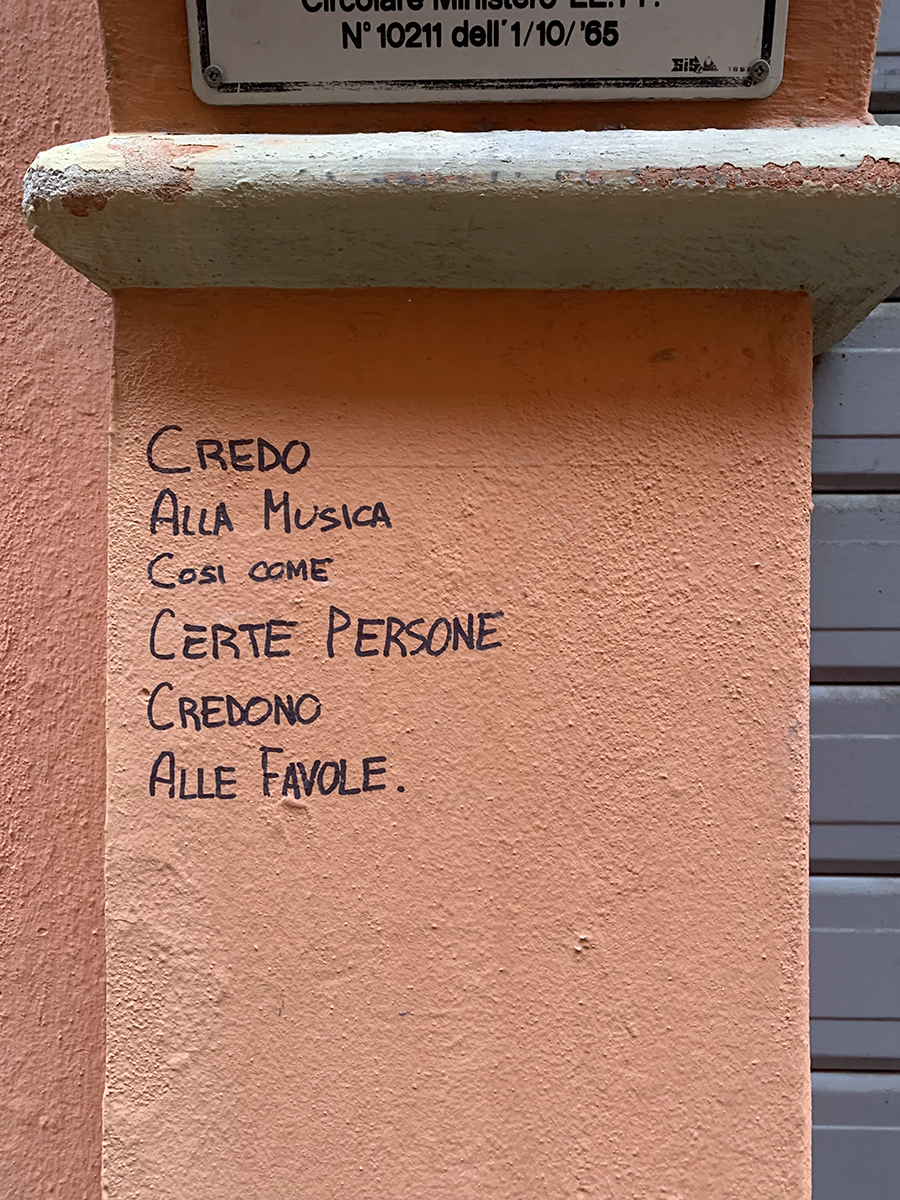 Circolare Ministero LL.PP.
N° 10211 dell'1/10/'65
SIS
CREDO
ALLA MUSICA
COSI COME
CERTE PERSONE
CREDONO
ALLE FAVOLE.